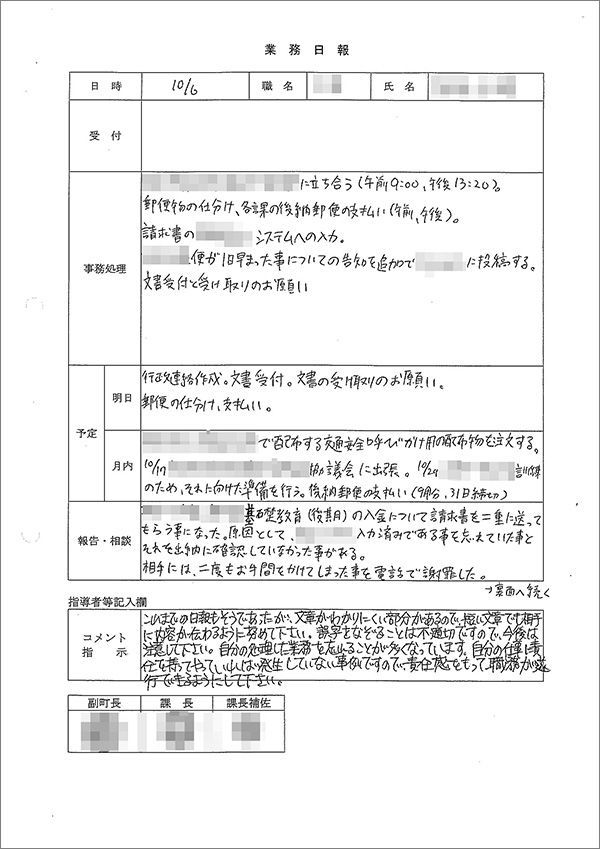 業務日報
日時 10/6 職名 氏名
受付
事務処理
に立ち合う(午前9:00、午後13:20)。
郵便物の仕分け、各課の後納郵便の支払い(午前、午後)。
請求書の システムへの入力。
便が1日早まった事についての告知を追加で に投稿する。
文書受付と受け取りのお願い
予定
明日
行政連絡作成。文書受付。文書の受け取りのお願い。
郵便の仕分け、支払い。
月内
で配布する交通安全呼びかけ用の配布物を注文する。
10/17 協議会に出張。10/24 訓練
のため、それに向けた準備を行う。後納郵便の支払い(9月分、31日締切)
報告・相談
基礎教育(後期)の入金について請求書を二重に送って
もらう事になった。原因として、 入力済みである事を忘れていた事と
それを出納に確認していなかった事がある。
相手には、二度もお手間をかけてしまった事を電話で謝罪した。
→裏面へ続く
指導者等記入欄
コメント
指示
これまでの日報もそうであったが、文章がわかりにくい部分があるので、短い文章でも相手
に内容が伝わるように努めて下さい。誤字をなぞることは不適切ですので、今後は
注意して下さい。自分の処理した業務を忘れることが多くなっています。自分の仕事に責
任を持ってやっていれば発生していない事例ですので、責任感をもって職務が遂
行できるようにして下さい。
副町長 課長 課長補佐